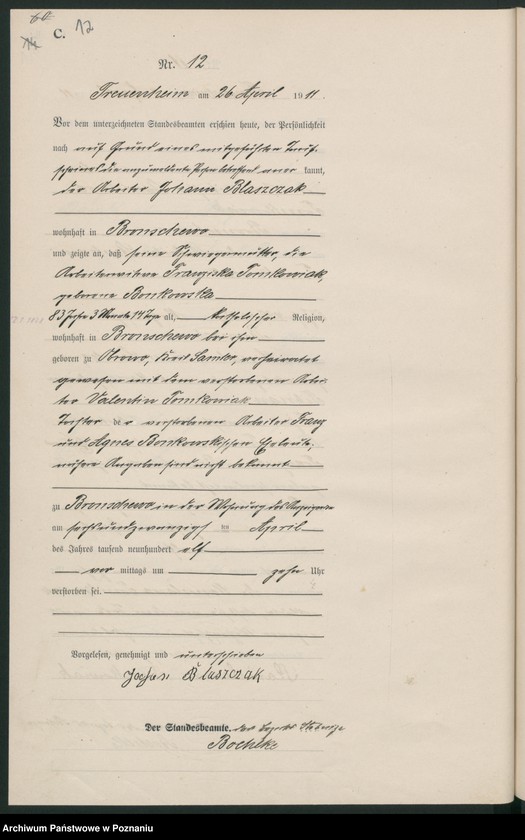 C. 12
14
Nr. 12
Treuenheim am 26 April 1911.
Vor dem unterzeichneten Standesbeamten erschien heute, der Persönlichkeit
nach auf Grund eines
kannt,
der Arbeiter Johann Blaszczak
wohnhaft in Bronschewo
und zeigte an, daß seine Schwiegermutter, die
Arbeiterwitwe Franziska Tomkowiak,
geborene Bonkowska
83 Jahre 3 Monate 14 Tage alt, katholischer Religion,
wohnhaft in Bronschewo bei ihm
geboren zu Kreis Samter, verheiratet
gewesen mit dem verstorbenen Arbei-
ter Valentin Tomkowiak
Tochter der verstorbenen Arbeiter Franz
und Agnes Bonkowskischen Eheleute,
nähere Angaben sind nicht bekannt
zu Bronschewo, in der Wohnung des Anzeigenden
am sechsundzwanzigsten April
des Jahres tausend neunhundert elf
vor mittags um zehn Uhr
verstorben sei.
Vorgelesen, genehmigt und unterschrieben
Blaszczak
Der Standesbeamte.
Archiwum Państwowe w Poznaniu